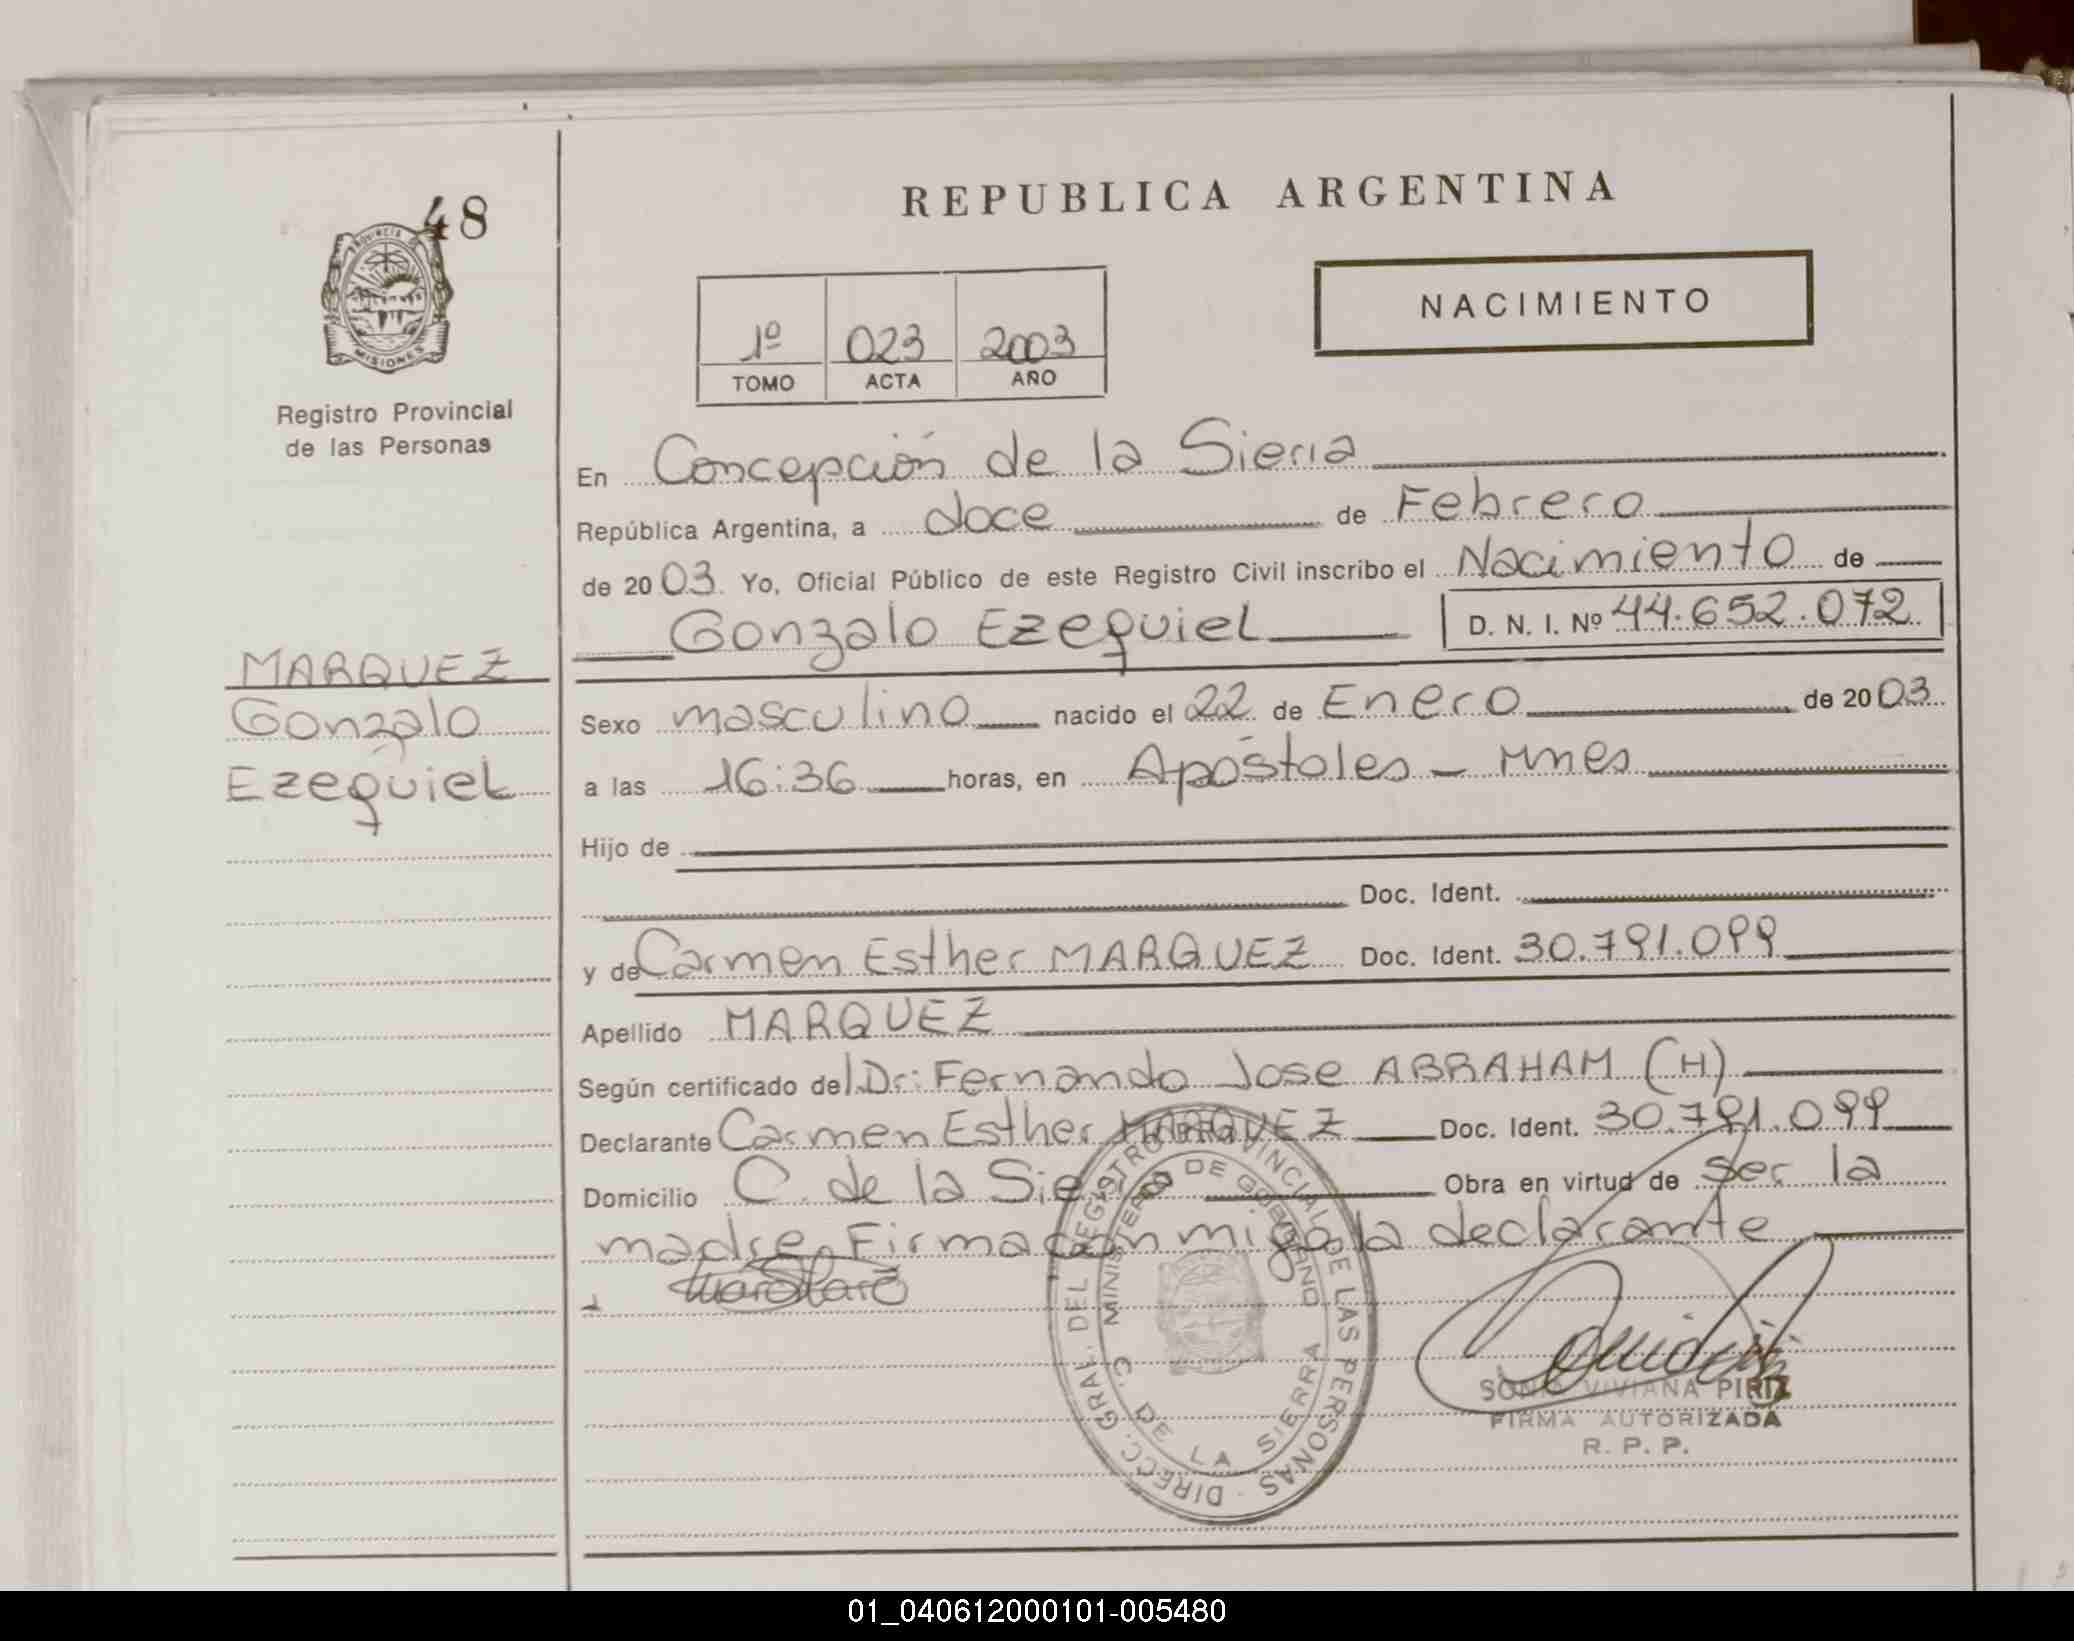 48
PROVINCIA DE
MISIONES
Registro Provincial
de las Personas
MARQUEZ
Gonzalo
Ezequiel
REPUBLICA ARGENTINA
1º 023 2003
TOMO ACTA AÑO
NACIMIENTO
En Concepción de la Sierra
República Argentina, a doce de Febrero
de 2003. Yo, Oficial Público de este Registro Civil inscribo el Nacimiento de
Gonzalo Ezequiel D. N. I. Nº 44.652.072
Sexo masculino nacido el 22 de Enero de 2003
a las 16:36 horas, en Apóstoles - Mnes
Hijo de
Doc. Ident.
y de Carmen Esther MARQUEZ Doc. Ident. 30.791.099
Apellido MARQUEZ
Según certificado del Dr: Fernando Jose ABRAHAM (H)
Declarante Carmen Esther MARQUEZ Doc. Ident. 30.791.099
Domicilio C. de la Sierra Obra en virtud de ser la
madre. Firma con migo la declarante
DIRECC. GRAL. DEL REGISTRO PROVINCIAL DE LAS PERSONAS
MINISTERIO DE GOBIERNO
C. DE LA SIERRA
SONIA VIVIANA PIRIZ
FIRMA AUTORIZADA
R. P. P.
01_040612000101-005480